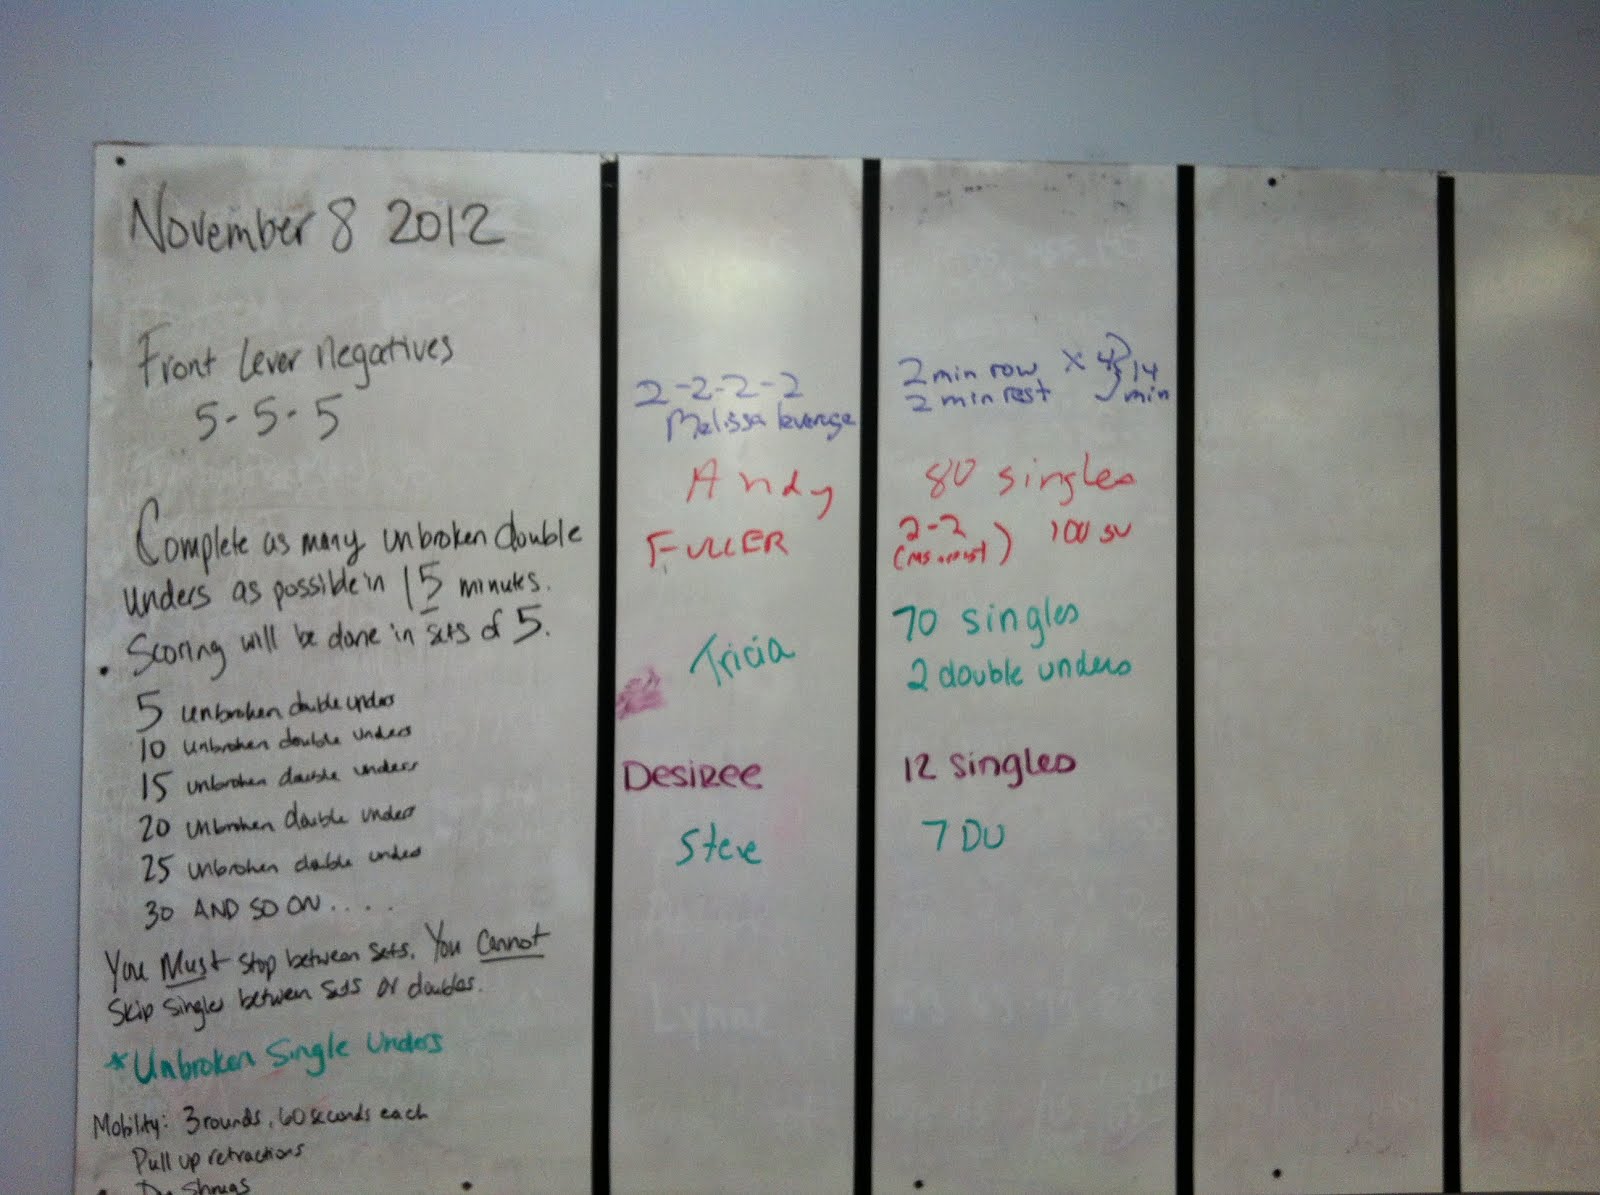 November 8 2012
Front lever negatives
5-5-5
Complete as many unbroken double
unders as possible in 15 minutes.
Scoring will be done in sets of 5.
5 unbroken double unders
10 unbroken double unders
15 unbroken double unders
20 unbroken double unders
25 unbroken double unders
30 AND SO ON....
You Must stop between sets. You Cannot
skip singles between sets or doubles.
*Unbroken Single Unders
Mobility: 3 rounds, 60 seconds each
Pull up retractions
Shrugs
2-2-2-2
Melissa leverage
Andy
FULLER
Tricia
Desiree
Steve
Lynne
2 min row x 4 } 14
2 min rest min
80 singles
2-2 ) 100 SU
70 singles
2 double unders
12 singles
7 DU